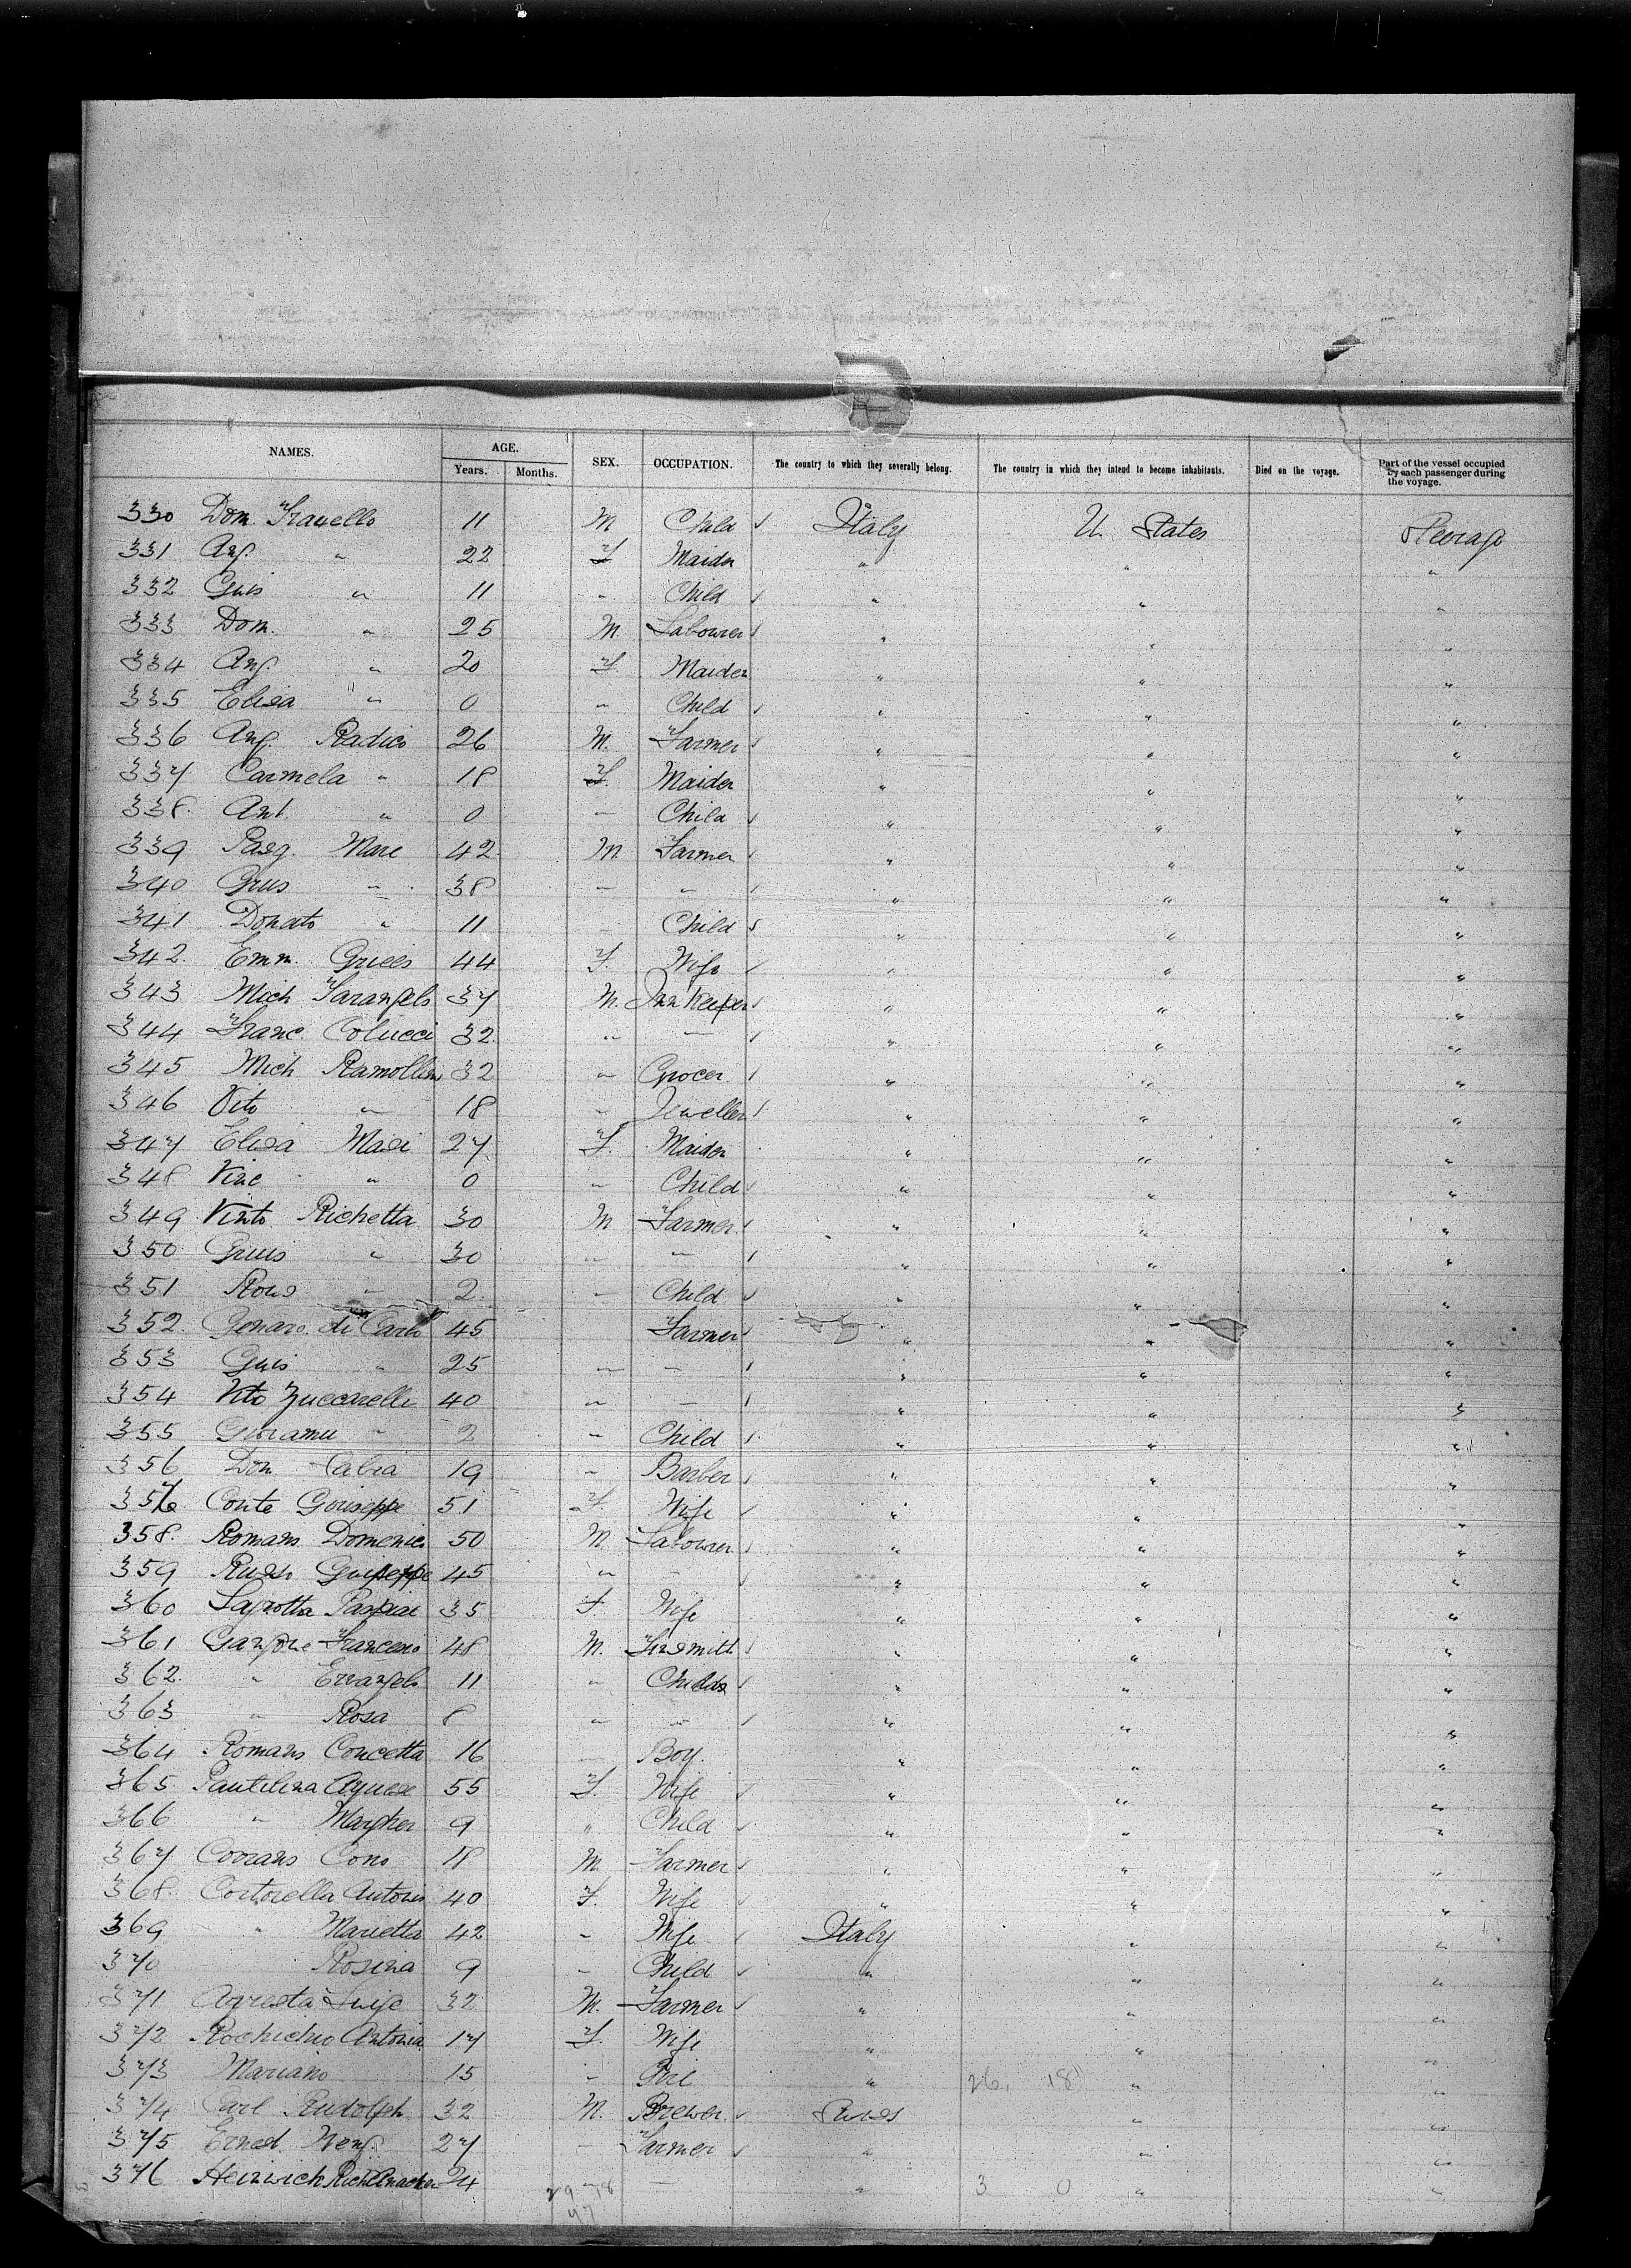 NAMES. AGE. SEX. OCCUPATION. The country to which they severally belong. The country in which they intend to become inhabitants. Died on the voyage. Part of the vessel occupied by each passenger during the voyage.
Years. Months.
330 Dom. 11 M Child Italy U. States Steerage
331 Ang. " 22 F Maiden " " "
332 Guis " 11 " Child " " "
333 Dom. " 25 M. Labourer " " "
334 Ang. " 20 F. Maiden " " "
335 Elisa " 0 " Child " " "
336 Ang. Radico 26 M. Farmer " " "
337 Carmela " 18 F. Maiden " " "
338. Ant. " 0 " Child " " "
339 Pasq. Mare 42 M Farmer " " "
340 Gius " 38 " " " " "
341 Donato " 11 " Child " " "
342. Emm. Griees 44 F. Wife " " "
343 Mich Sarangelo 37 M. Inn Keeper " " "
344 Franc. Colucci 32 " " " " "
345 Mich 32 " Grocer " " "
346 Vito " 18 " Jeweller " " "
347 Elisa Masi 27 F. Maiden " " "
348 Vinc " 0 " Child " " "
349 Vinto Richetta 30 M Farmer " " "
350 Gius " 30 " " " " "
351 Rous " 2 " Child " " "
352. Genaro di Carlo 45 Farmer " " "
353 Guis " 25 " " " " "
354 Vito Zuccarelli 40 " " " " "
355 " 2 " Child " " "
356 Dom Calia 19 " Barber " " "
357 Conte Giuseppe 51 F. Wife " " "
358. Romano Domenico 50 M Labourer " " "
359 Russo Guiseppe 45 " " " " "
360 35 F. Wife " " "
361 Francesco 48 M. Tinsmith " " "
362. " Evangelo 11 " Childs " " "
363 " Rosa 8 " " " " "
364 Romano Concetta 16 " Boy. " " "
365 Pantilena Agnese 55 F. Wife " " "
366 " Margher 9 " Child " " "
367 Corrans Cono 18 M Farmer " " "
368. Cortorella Antonio 40 F. Wife " " "
369 " Marietta 42 " Wife Italy " "
370 Rosina 9 " Child " " "
371 Agresta Luige 32 M. Farmer " " "
372 Rochichio Antonia 17 F. Wife " " "
373 Mariano 15 " Girl " 26, 18 " "
374 Carl Rudolph 32 M. Brewer Swiss " "
375 Ernest 27 " Farmer " " "
376 Heinrich 24 " " 3 0 " "